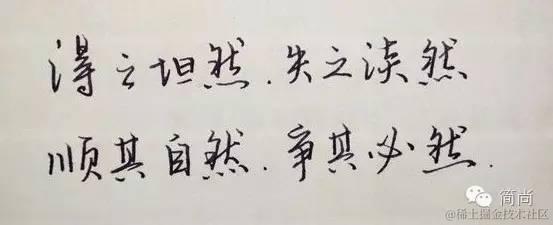 得之坦然.失之淡然
顺其自然.争其必然.
简尚
@稀土掘金技术社区